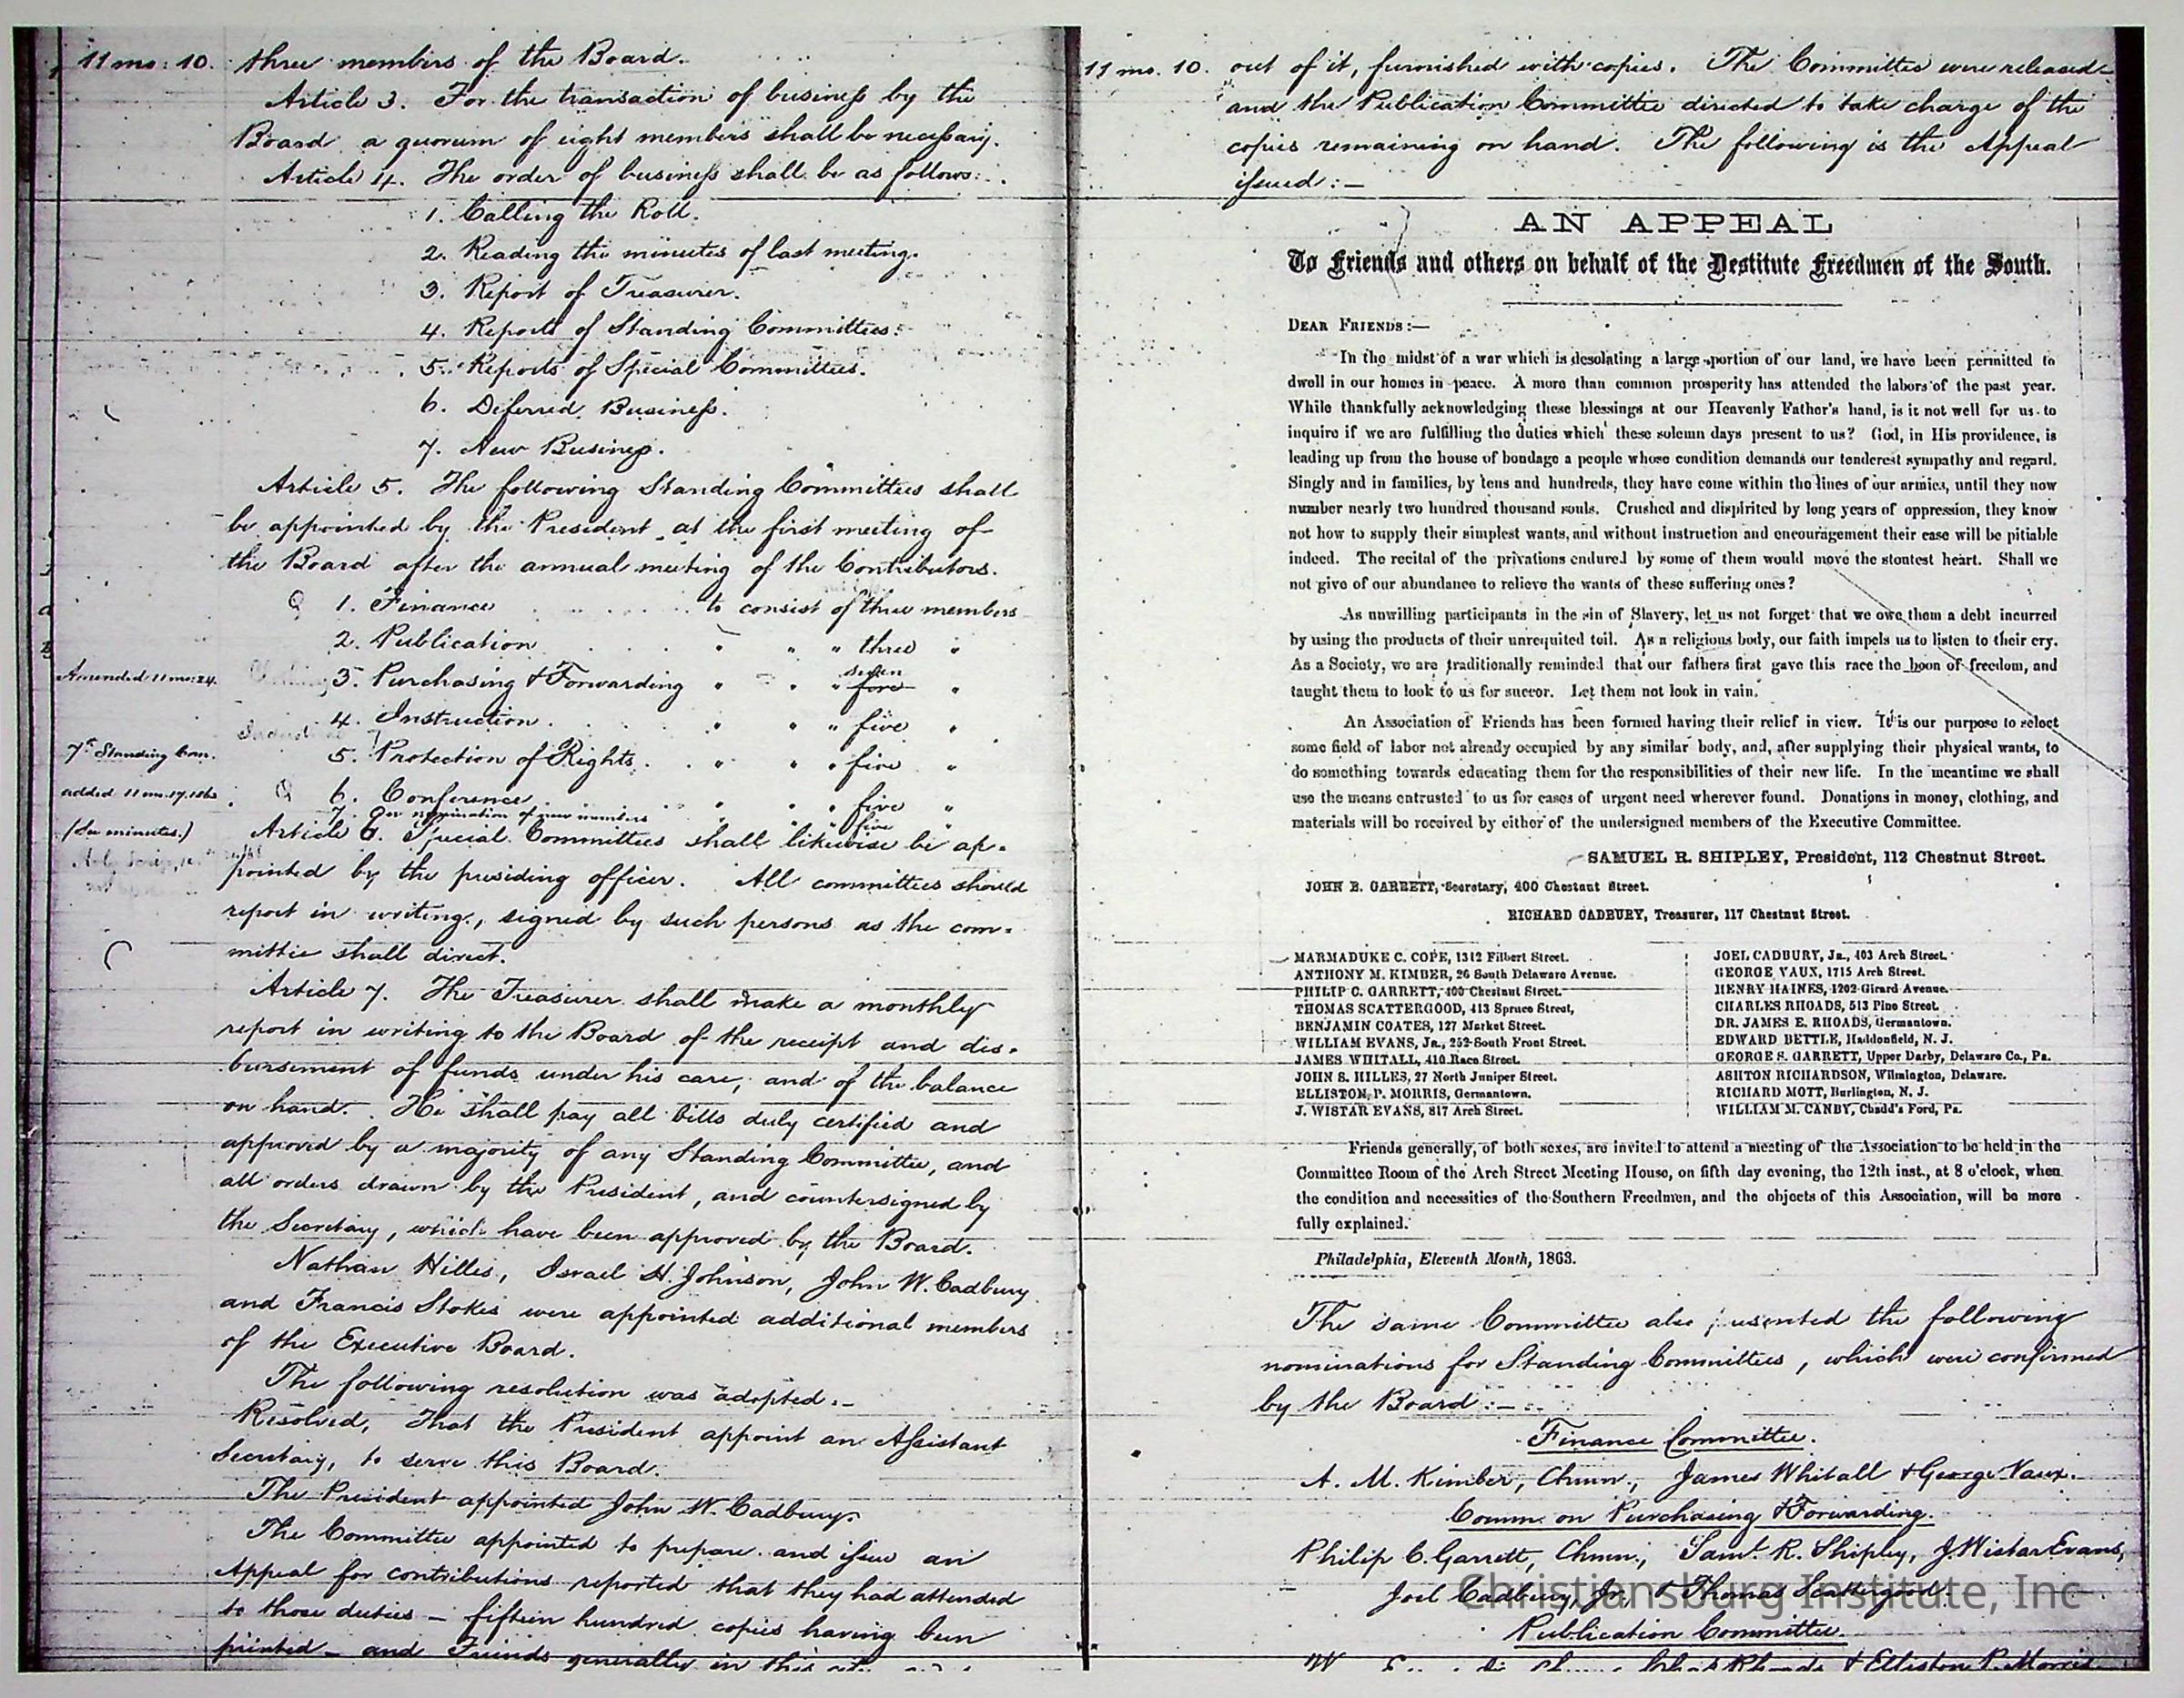 11 mo: 10. three members of the Board.
Article 3. For the transaction of business by the
Board a quorum of eight members shall be necessary.
Article 4. The order of business shall be as follows:
1. Calling the Roll.
2. Reading the minutes of last meeting.
3. Report of Treasurer.
4. Reports of Standing Committees.
5. Reports of Special Committees.
6. Deferred Business.
7. New Business.
Article 5. The following Standing Committees shall
be appointed by the President at the first meeting of
the Board after the annual meeting of the Contributors.
1. Finance to consist of three members
2. Publication " " " three "
Amended 11 mo: 24. 3. Purchasing & Forwarding " " " seven five "
4. Instruction " " " five "
7th Standing Com. 5. Protection of Rights " " " five "
added 11 mo. 17. 1863 6. Conference " " " five "
7. On nomination of new members " " " five
(See minutes.) Article 6. Special Committees shall likewise be ap-
pointed by the presiding officer. All committees should
report in writing, signed by such persons as the com-
mittee shall direct.
Article 7. The Treasurer shall make a monthly
report in writing to the Board of the receipt and dis-
bursement of funds under his care, and of the balance
on hand. He shall pay all bills duly certified and
approved by a majority of any Standing Committee, and
all orders drawn by the President, and countersigned by
the Secretary, which have been approved by the Board.
Nathan Hilles, Israel H. Johnson, John W. Cadbury
and Francis Stokes were appointed additional members
of the Executive Board.
The following resolution was adopted:-
Resolved, That the President appoint an Assistant
Secretary, to serve this Board.
The President appointed John W. Cadbury.
The Committee appointed to prepare and issue an
Appeal for contributions reported that they had attended
to those duties — fifteen hundred copies having been
printed — and Friends generally in this
11 mo. 10. out of it, furnished with copies. The Committee were released
and the Publication Committee directed to take charge of the
copies remaining on hand. The following is the Appeal
issued:—
AN APPEAL
To Friends and others on behalf of the Destitute Freedmen of the South.
DEAR FRIENDS:—
In the midst of a war which is desolating a large portion of our land, we have been permitted to
dwell in our homes in peace. A more than common prosperity has attended the labors of the past year.
While thankfully acknowledging these blessings at our Heavenly Father's hand, is it not well for us to
inquire if we are fulfilling the duties which these solemn days present to us? God, in His providence, is
leading up from the house of bondage a people whose condition demands our tenderest sympathy and regard.
Singly and in families, by tens and hundreds, they have come within the lines of our armies, until they now
number nearly two hundred thousand souls. Crushed and dispirited by long years of oppression, they know
not how to supply their simplest wants, and without instruction and encouragement their case will be pitiable
indeed. The recital of the privations endured by some of them would move the stoutest heart. Shall we
not give of our abundance to relieve the wants of these suffering ones?
As unwilling participants in the sin of Slavery, let us not forget that we owe them a debt incurred
by using the products of their unrequited toil. As a religious body, our faith impels us to listen to their cry.
As a Society, we are traditionally reminded that our fathers first gave this race the boon of freedom, and
taught them to look to us for succor. Let them not look in vain.
An Association of Friends has been formed having their relief in view. It is our purpose to select
some field of labor not already occupied by any similar body, and, after supplying their physical wants, to
do something towards educating them for the responsibilities of their new life. In the meantime we shall
use the means entrusted to us for cases of urgent need wherever found. Donations in money, clothing, and
materials will be received by either of the undersigned members of the Executive Committee.
SAMUEL R. SHIPLEY, President, 112 Chestnut Street.
JOHN B. GARRETT, Secretary, 400 Chestnut Street.
RICHARD CADBURY, Treasurer, 117 Chestnut Street.
MARMADUKE C. COPE, 1312 Filbert Street.
ANTHONY M. KIMBER, 26 South Delaware Avenue.
PHILIP C. GARRETT, 400 Chestnut Street.
THOMAS SCATTERGOOD, 413 Spruce Street,
BENJAMIN COATES, 127 Market Street.
WILLIAM EVANS, Jr., 252 South Front Street.
JAMES WHITALL, 410 Race Street.
JOHN S. HILLES, 27 North Juniper Street.
ELLISTON P. MORRIS, Germantown.
J. WISTAR EVANS, 817 Arch Street.
JOEL CADBURY, Jr., 403 Arch Street.
GEORGE VAUX, 1715 Arch Street.
HENRY HAINES, 1202 Girard Avenue.
CHARLES RHOADS, 513 Pine Street.
DR. JAMES E. RHOADS, Germantown.
EDWARD BETTLE, Haddonfield, N. J.
GEORGE S. GARRETT, Upper Darby, Delaware Co., Pa.
ASHTON RICHARDSON, Wilmington, Delaware.
RICHARD MOTT, Burlington, N. J.
WILLIAM M. CANBY, Chadd's Ford, Pa.
Friends generally, of both sexes, are invited to attend a meeting of the Association to be held in the
Committee Room of the Arch Street Meeting House, on fifth day evening, the 12th inst., at 8 o'clock, when
the condition and necessities of the Southern Freedmen, and the objects of this Association, will be more
fully explained.
Philadelphia, Eleventh Month, 1863.
The same Committee also presented the following
nominations for Standing Committees, which were confirmed
by the Board:—
Finance Committee.
A. M. Kimber, Chmn., James Whitall & George Vaux.
Comm. on Purchasing & Forwarding.
Philip C. Garrett, Chmn., Saml. R. Shipley, J. Wistar Evans,
Joel Cadbury, Jr. & Thomas Scattergood.
Christiansburg Institute, Inc
Publication Committee.
Rhoads & Elliston P. Morris